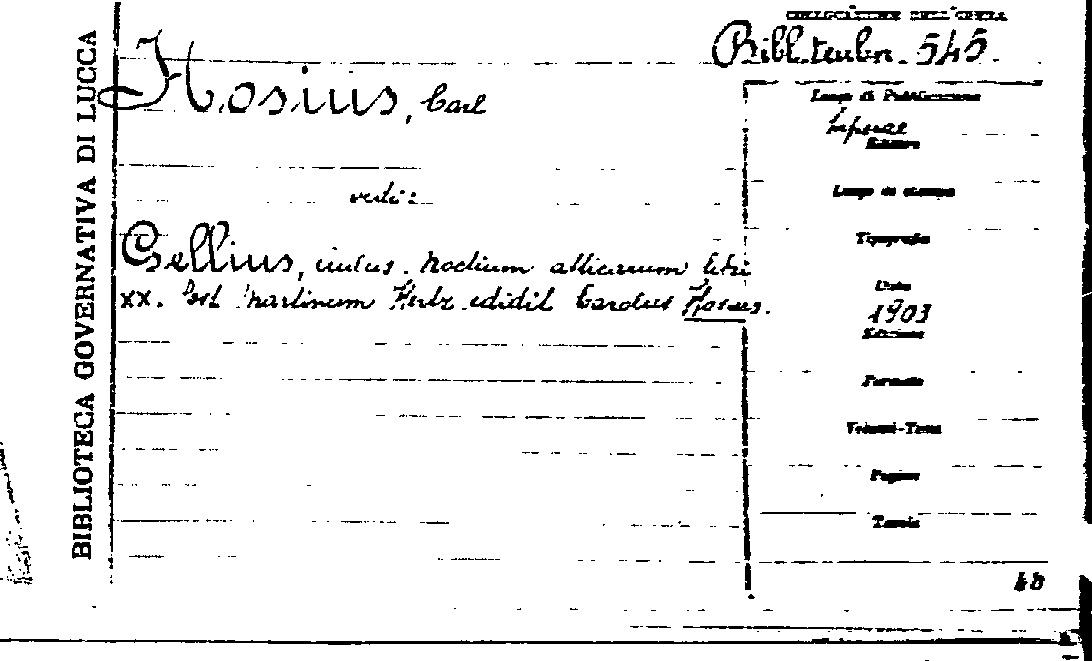 BIBLIOTECA GOVERNATIVA DI LUCCA
COLLOCAZIONE DELL'OPERA
Bibl. teubn. 545.
Hosius, Carl
Luogo di Pubblicazione
Lipsiae
Editore
vedi:
Luogo di stampa
Gellius, . Noctium atticarum libri
XX. Post Martinum Hertz edidit Carolus Hosius.
Tipografia
Data
1903
Edizione
Formato
Volumi-Tomi
Pagine
Tavole